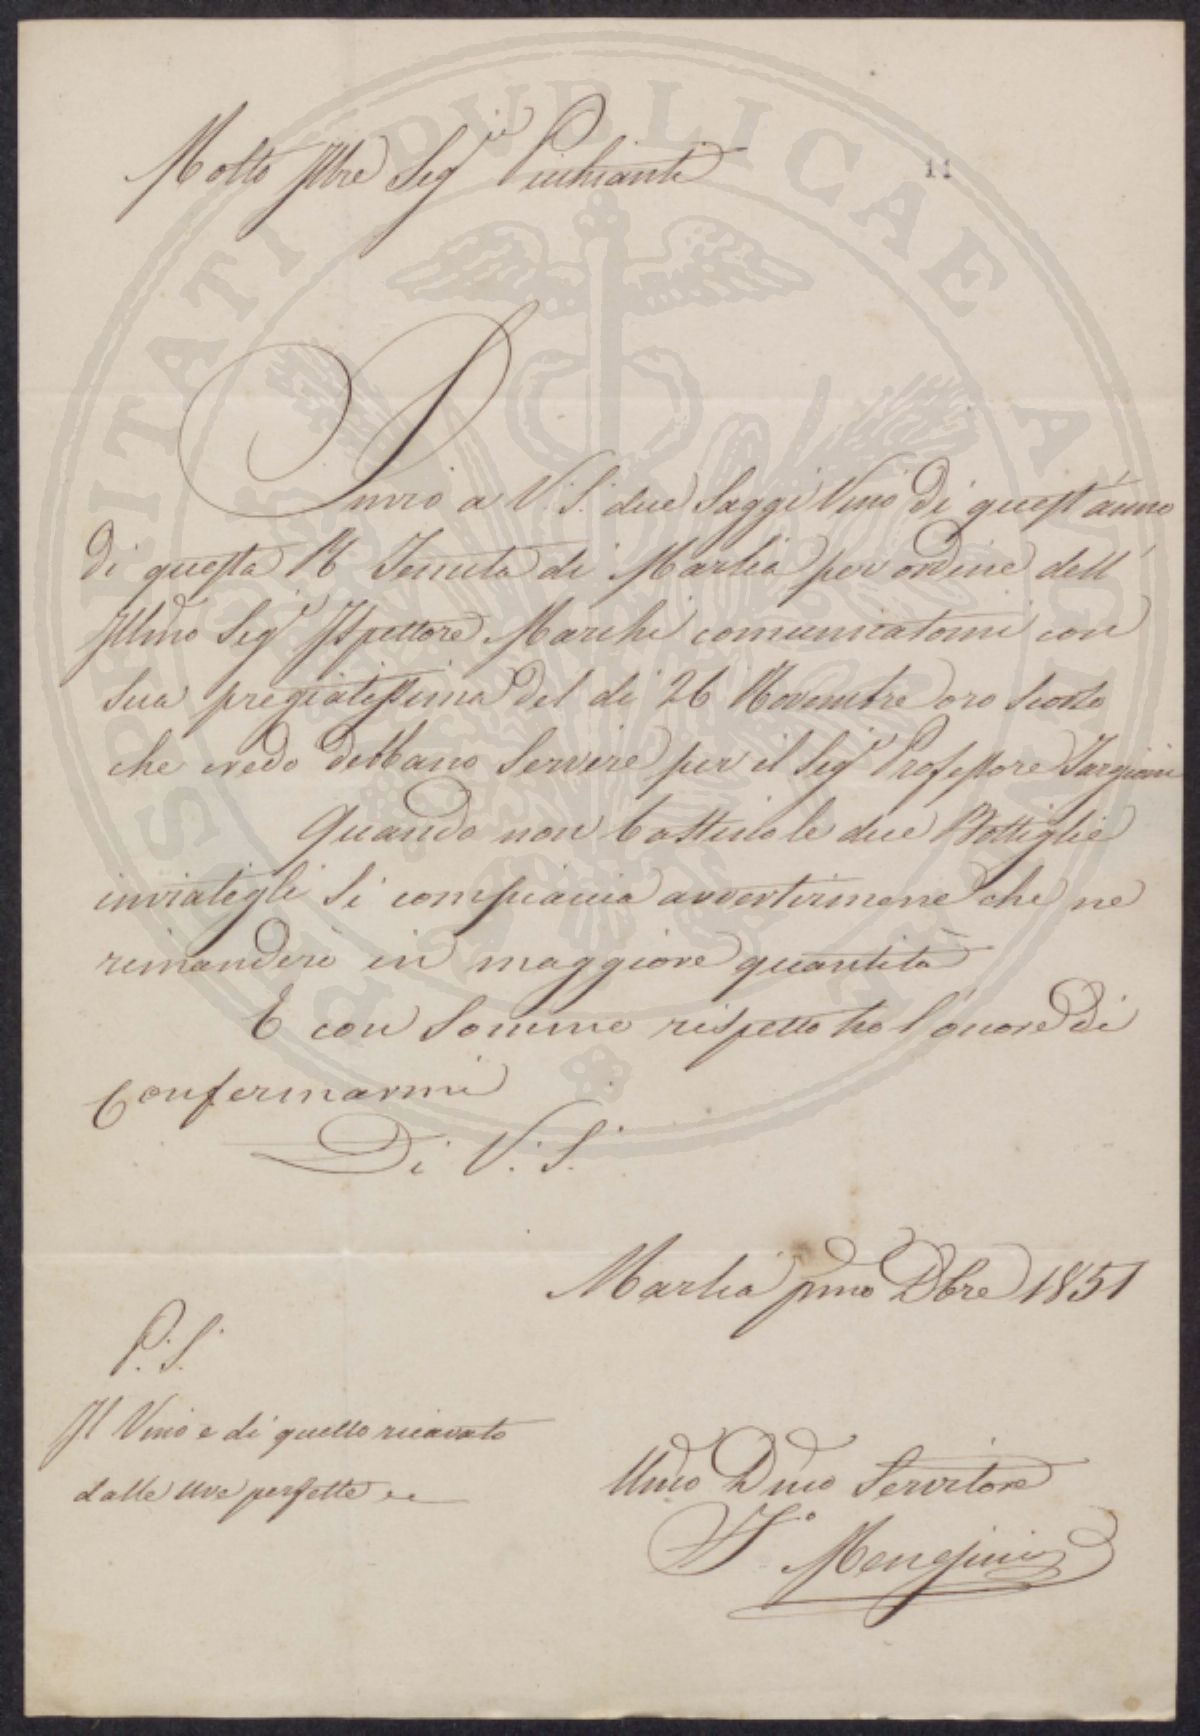 11
Molto Illre Sigre Picchianti
Invio a V. S. due Saggi Vino di quest'anno
di questa R. Tenuta di Marlia per ordine dell'
Illmo Sigr Ispettore Marchi comunicatomi con
sua pregiatissima del di 26 Novembre oro Scorso
che credo debbano servire per il Sigr Professore Targioni
Quando non bastino le due Bottiglie
inviategli si compiaccia avvertirmene che ne
rimanderò in maggiore quantità
E con somme rispetto ho l'onore di
Confermarmi
Di V. S.
Marlia pmo Dbre 1851
P. S.
Il Vino e di quello ricavato
dalle uve perfette
Umo Dmo Servitore
PROSPERITATI PUBLICAE AUGENDAE